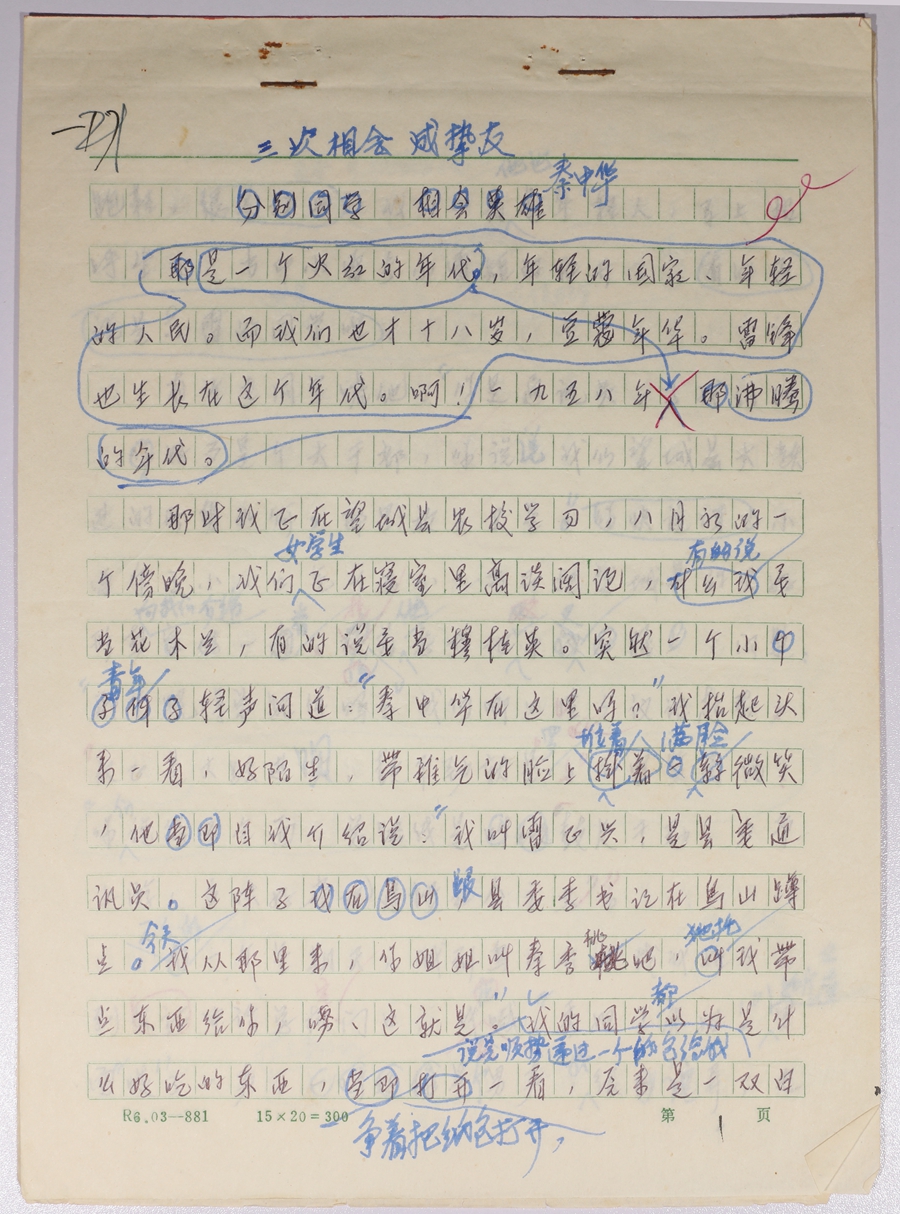 三次相会 成挚友
秦中华
分别同学 相会英雄
那是一个火红的年代，年轻的国家、年轻
的人民。而我们也才十八岁，豆蔻年华。雷锋
也生长在这个年代。啊！一九五八年 那沸腾
的年代。
那时我正在望城县农校学习，八月初的一
女学生 有的说
个傍晚，我们正在寝室里高谈阔论，什么我要
当花木兰，有的说要当穆桂英。突然一个小
青年
轻声问道：“秦中华在这里吗？”我抬起头
堆着 满脸
来一看，好陌生，带稚气的脸上挂着一丝微笑
，他当即自我介绍说：“我叫雷正兴，是县委通
讯员。这阵子我在乌山 跟县委李书记在乌山蹲
今天 她托
点。我从那里来，你姐姐叫秦杏桃吧，叫我带
桃
点东西给你，喏、这就是。”我的同学以为是什
都
说完顺势递过一个纸包给我
么好吃的东西，当即打开一看，原来是一双白
争着把纸包打开，
R6.03—881 15×20=300 第 1 页